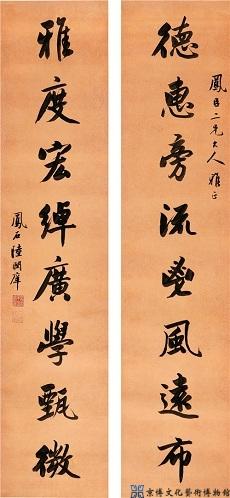 鳳臣二兄大人雅正
德惠旁流鬯風遠布
雅度宏綽廣學甄微
鳳石陸潤庠
京博文化藝術博物館